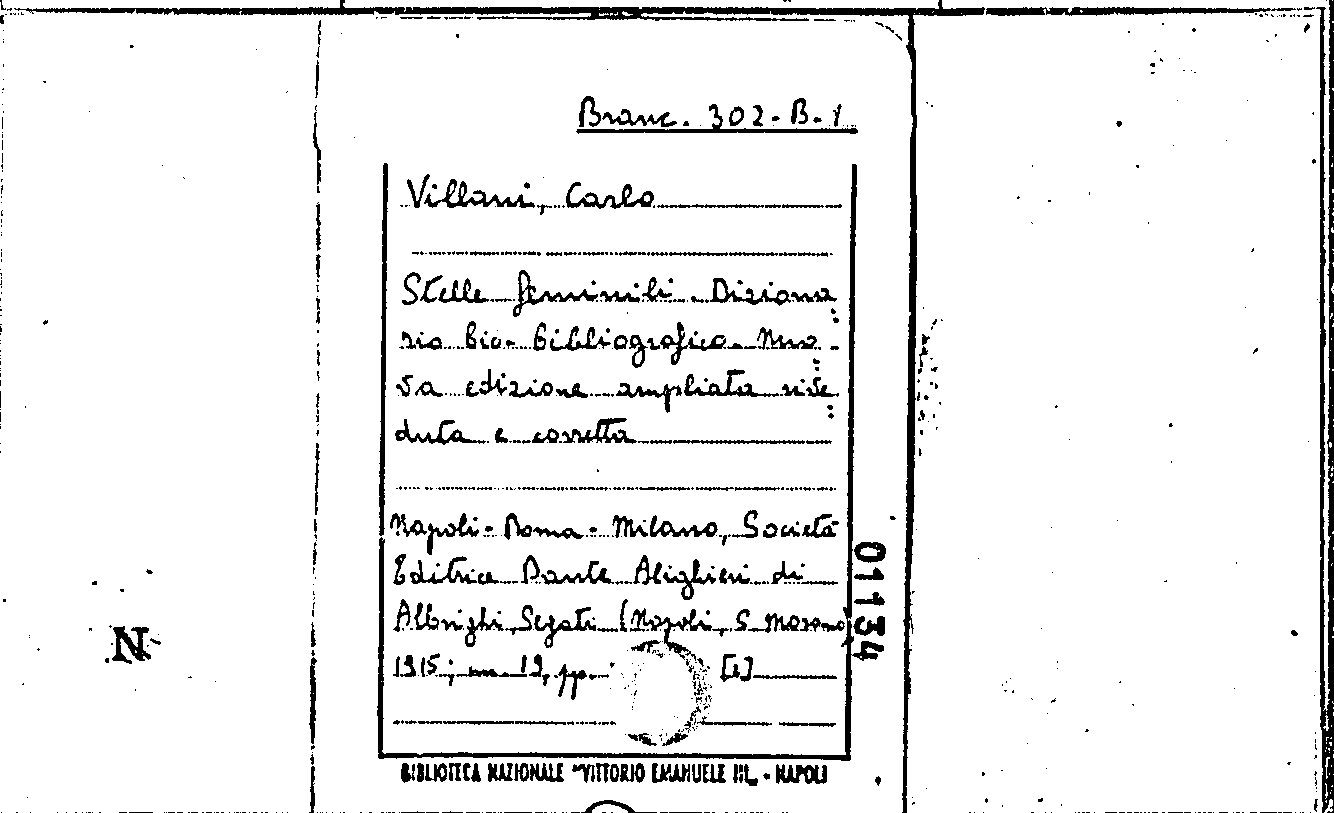 Branc. 302-B-1
Villani, Carlo
Stelle feminili. Diziona
rio bio-bibliografico. Nuo
va edizione ampliata rive
duta e corretta
Napoli-Roma-Milano, Società
Editrice Dante Alighieri di
Albrighi, Segati (Napoli, S. Morano)
1915; 19, pp.
01134
N
BIBLIOTECA NAZIONALE "VITTORIO EMANUELE III" - NAPOLI